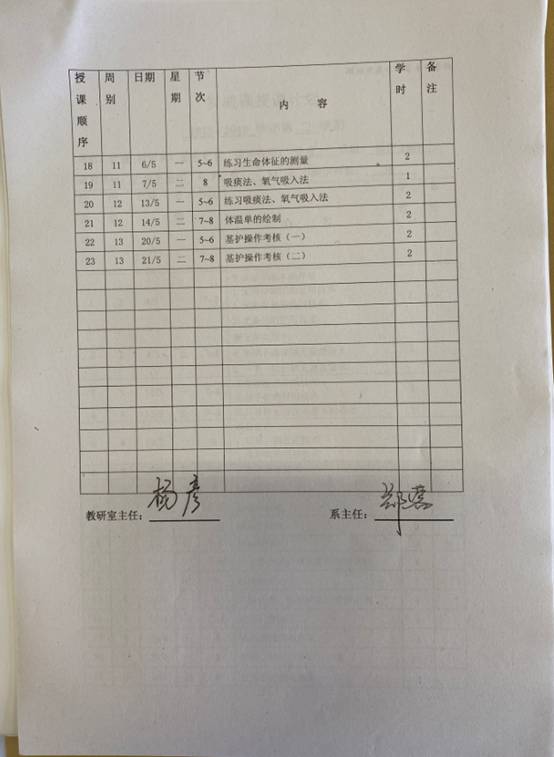 授课顺序 周别 日期 星期 节次 内 容 学时 备注
18 11 6/5 一 5~6 练习生命体征的测量 2
19 11 7/5 二 8 吸痰法、氧气吸入法 1
20 12 13/5 一 5~6 练习吸痰法、氧气吸入法 2
21 12 14/5 二 7~8 体温单的绘制 2
22 13 20/5 一 5~6 基护操作考核（一） 2
23 13 21/5 二 7~8 基护操作考核（二） 2
教研室主任：杨彦 系主任：